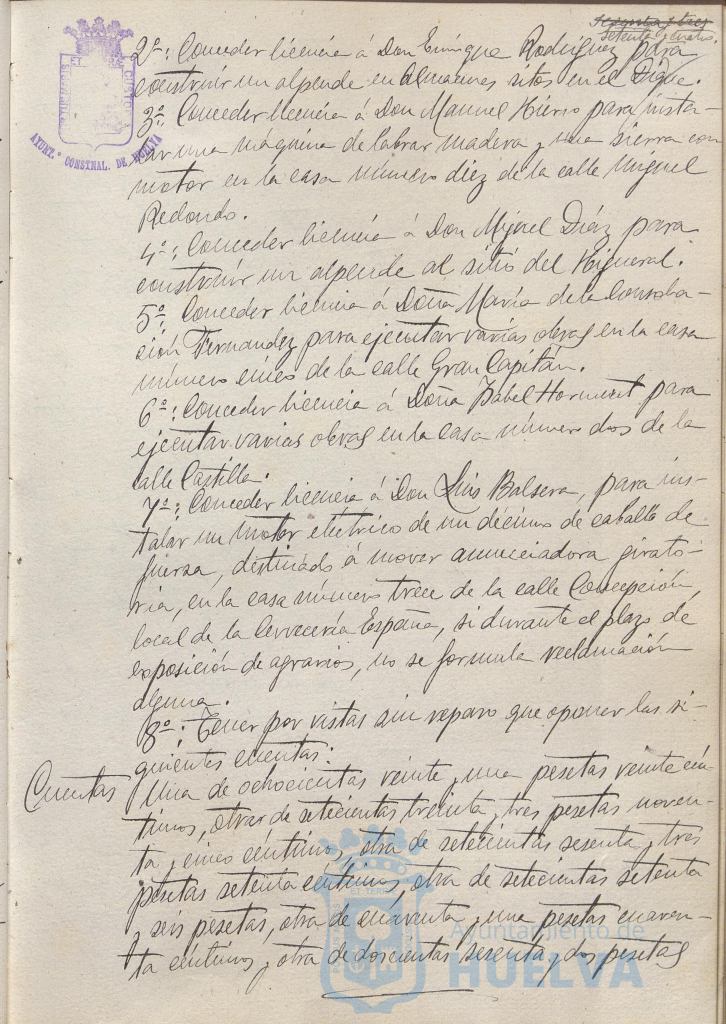 sesenta y tres
setenta y cuatro.
2º: Conceder licencia á Don Enrique Rodriguez para
construir un alpende en Almacenes sitos en el Dique.
3º: Conceder licencia á Don Manuel Hierro para insta-
lar una máquina de labrar madera y una sierra con
motor en la casa número diez de la calle Miguel
Redondo.
4º: Conceder licencia á Don Miguel Diáz para
construir un alpende al sitio del Higueral.
5º: Conceder licencia á Doña María de la Consola-
ción Fernandez para ejecutar varias obras en la casa
número cinco de la calle Gran Capitán.
6º: Conceder licencia á Doña Isabel Hornuest para
ejecutar varias obras en la casa número dos de la
calle Castilla.
7º: Conceder licencia á Don Luis Balsera, para ins-
talár un motor eléctrico de un décimo de caballo de
fuerza, destinado á mover anunciadora girató-
ria, en la casa número trece de la calle Concepción,
local de la Cervecería España, si durante el plazo de
exposición de agravios, no se formula reclamación
alguna.
8º: Tener por vistas sin reparo que oponer las si-
guientes cuentas:
Cuentas
Una de ochocientas veinte y una pesetas veinte cén-
timos, otrar de setecientas treinta y tres pesetas noven-
ta y cinco céntimos, otra de setecientas sesenta y tres
pesetas setenta céntimos, otra de setecientas setenta
y seis pesetas, otra de cuarenta y una pesetas cuaren-
ta céntimos y otra de doscientas sesenta y dos pesetas
AYUNT.º CONSTNAL. DE HUELVA
Ayuntamiento de
HUELVA